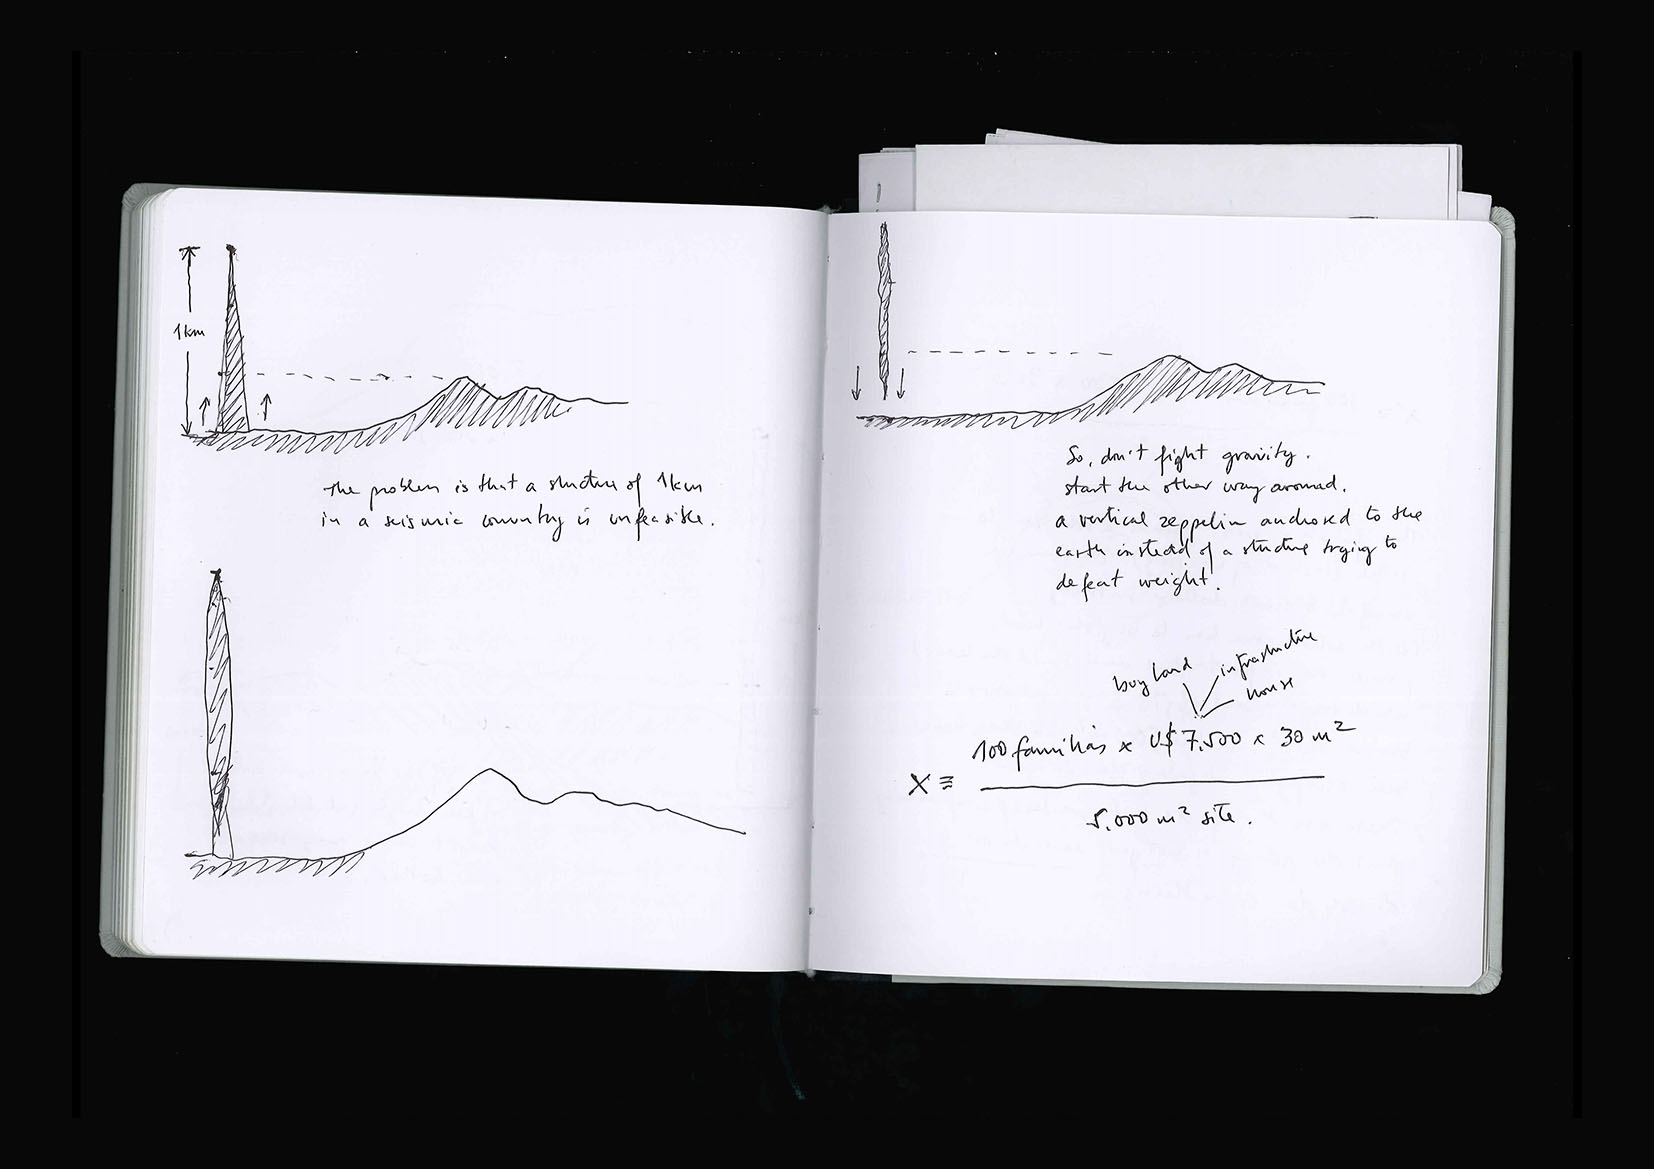 1km
The problem is that a structure of 1km
in a seismic country is unfeasible.
So, don't fight gravity.
start the other way around.
a vertical zeppelin anchored to the
earth instead of a structure trying to
defeat weight.
buy land
infrastructure
house
100 familias x U$ 7.500 x 30 m²
X ≡
5.000 m² site.